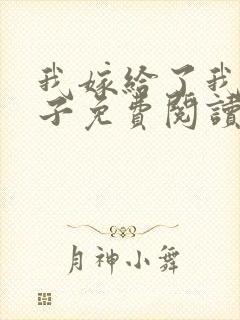 我嫁給了我
子免費閱讀
月神小舞